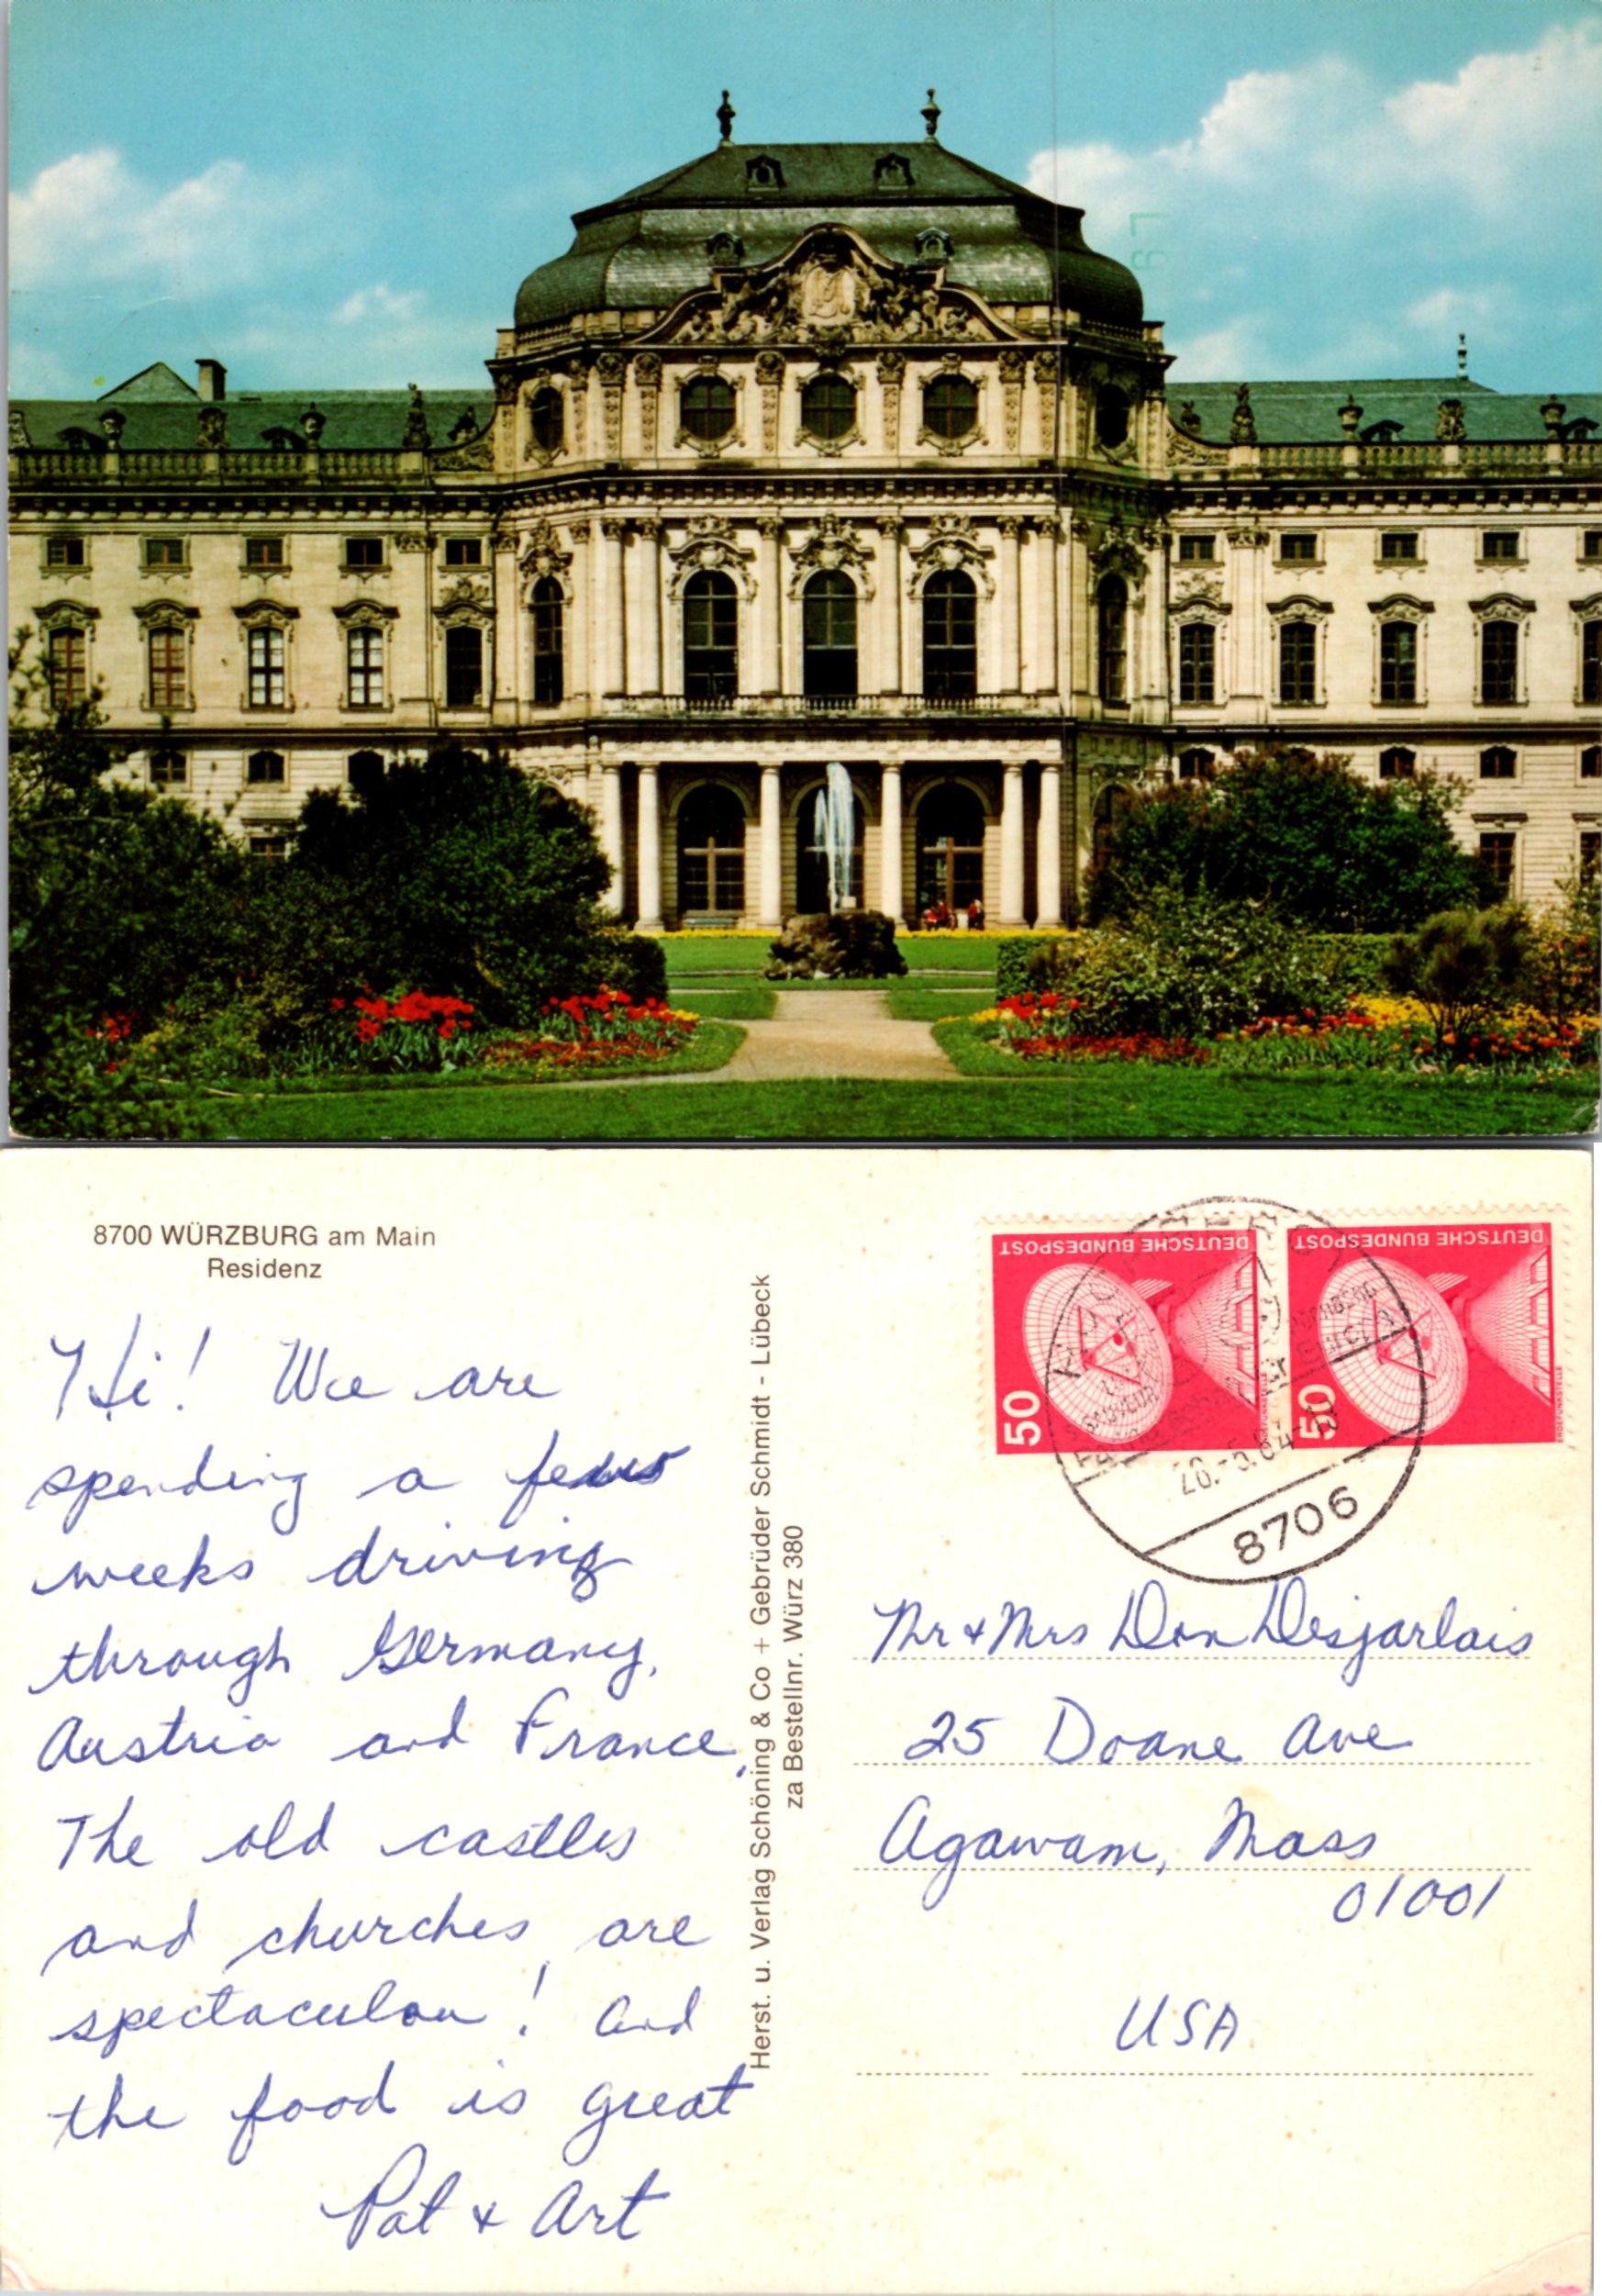 8700 WÜRZBURG am Main
Residenz
Hi! We are
spending a few
weeks driving
through Germany,
Austria and France.
The old castles
and churches are
spectacular! And
the food is great
Pat & Art
Herst. u. Verlag Schöning & Co + Gebrüder Schmidt - Lübeck
za Bestellnr. Würz 380
DEUTSCHE BUNDESPOST
50
DEUTSCHE BUNDESPOST
50
ERDEFUNKSTELLE
8706
Mr & Mrs Don Desjarlais
25 Doane Ave
Agawam, Mass
01001
USA